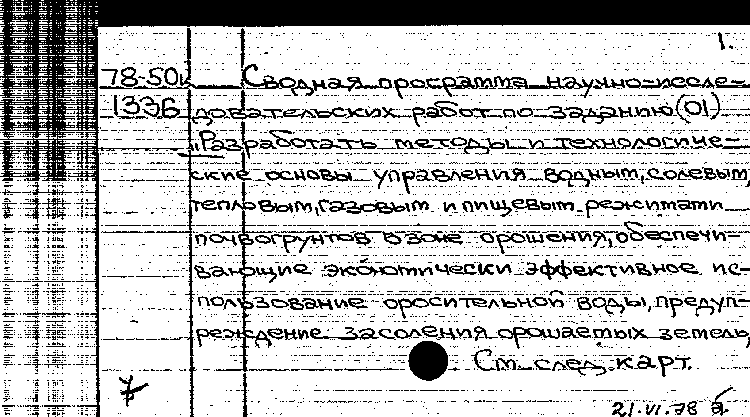 1.
78-50к Сводная программа научно-иссле-
1336 довательских работ по заданию (01)
„Разработать методы и технологиче-
ские основы управления водным, солевым,
тепловым, газовым и пищевым режимами
почвогрунтов в зоне орошения, обеспечи-
вающие экономически эффективное ис-
пользование оросительной воды, предуп-
реждение засоления орошаемых земель,
См. след. карт.
21.VI.78